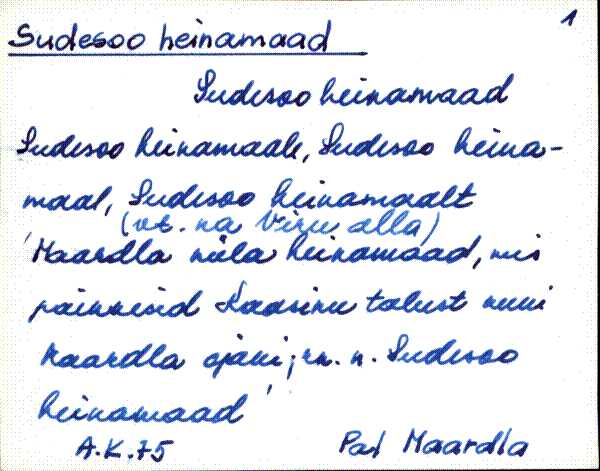 1
Sudesoo heinamaad
Sudesoo heinamaad
Sudesoo heinamaale, Sudesoo heina-
maal, Sudesoo heinamaalt
(vt. ka Viru alla)
'Maardla küla heinamaad, mis
paiknesid Kaasiku talust kuni
Maardla ojani; rn. n. Sudesoo
heinamaad'
A.K. 75 Pal Maardla